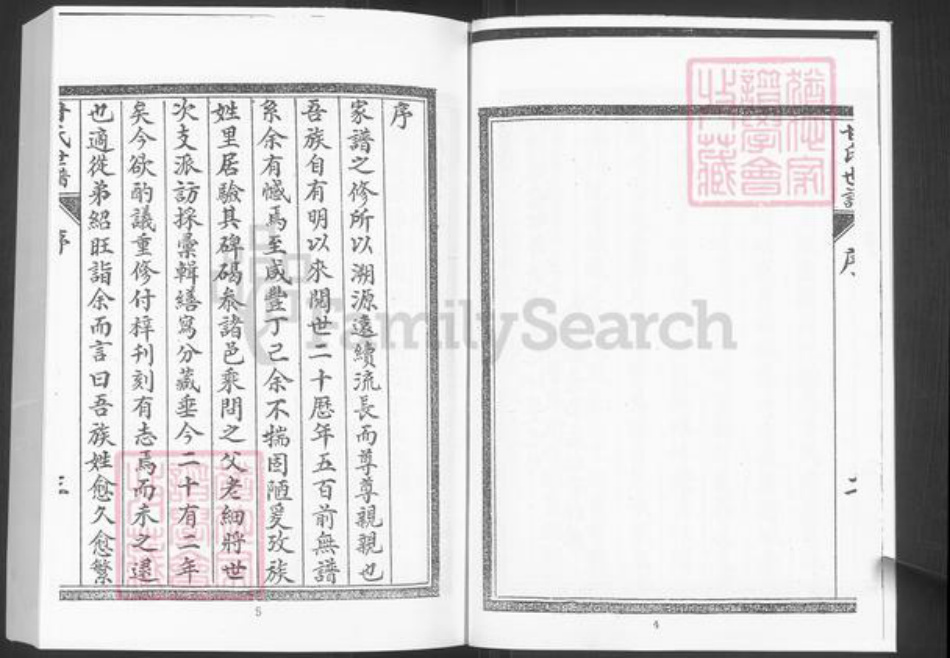 序
二
序
家譜之修所以溯源遠續流長而尊尊親親也
吾族自有明以來閱世二十歷年五百前無譜
系余有憾焉至咸豐丁己余不揣固陋爰攷族
姓里居驗其碑碣叅諸邑乘問之父老細將世
次支派訪採彙輯繕寫分藏垂今二十有二年
矣今欲酌議重修付梓刊刻有志焉而未之遑
也適從弟紹旺詣余而言曰吾族姓愈久愈繁
氏世譜
序
三
5
4
FamilySearch